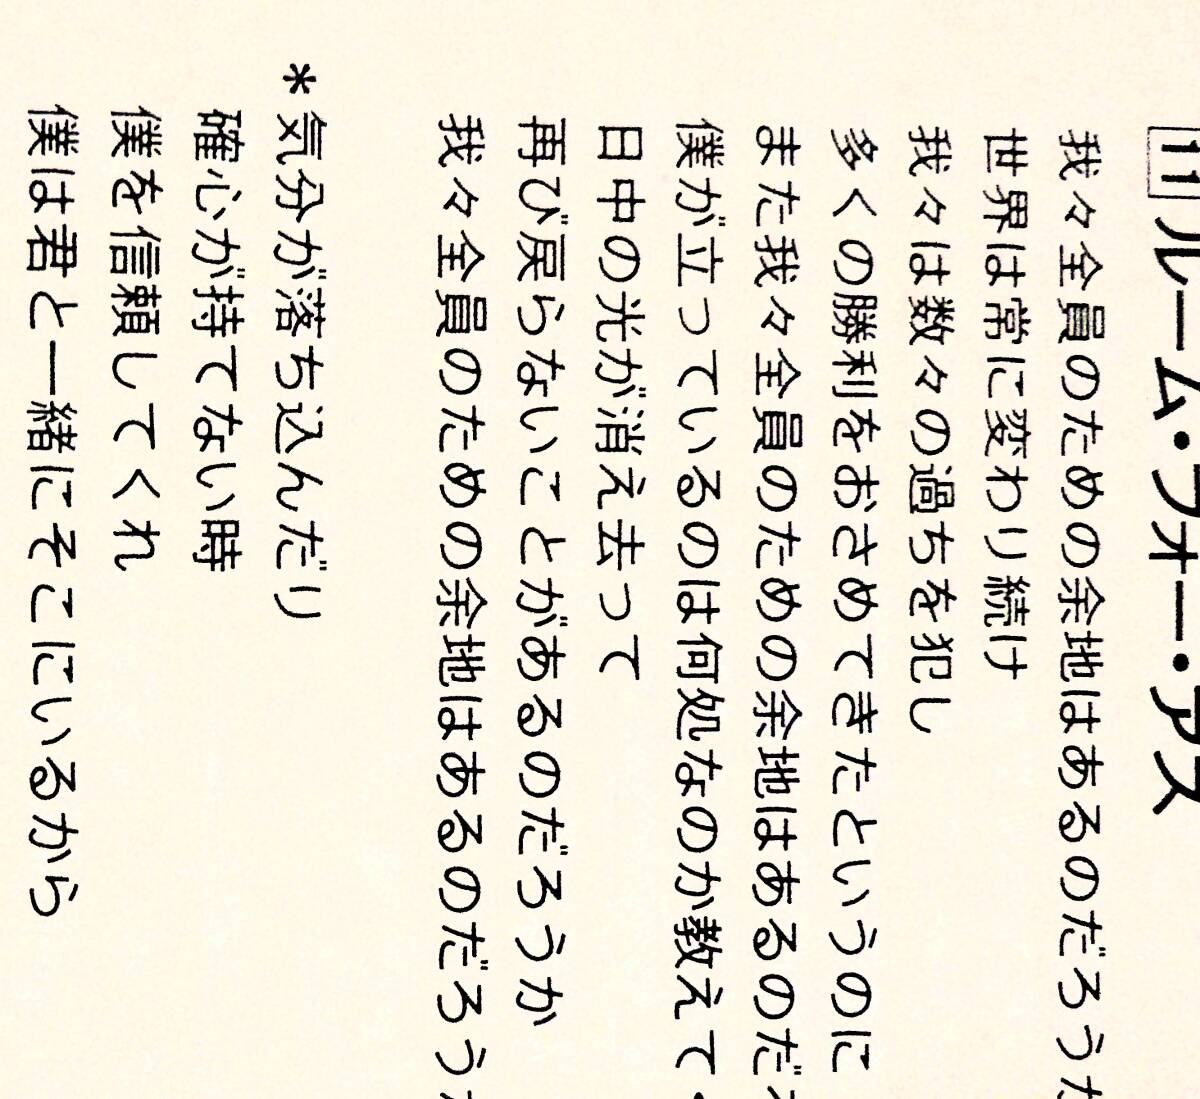 11 ルーム・フォー・アス
我々全員のための余地はあるのだろうか
世界は常に変わり続け
我々は数々の過ちを犯し
多くの勝利をおさめてきたというのに
まだ我々全員のための余地はあるのだろ
僕が立っているのは何処なのか教えてく
日中の光が消え去って
再び戻らないことがあるのだろうか
我々全員のための余地はあるのだろうか
＊気分が落ち込んだり
確心が持てない時
僕を信頼してくれ
僕は君と一緒にそこにいるから